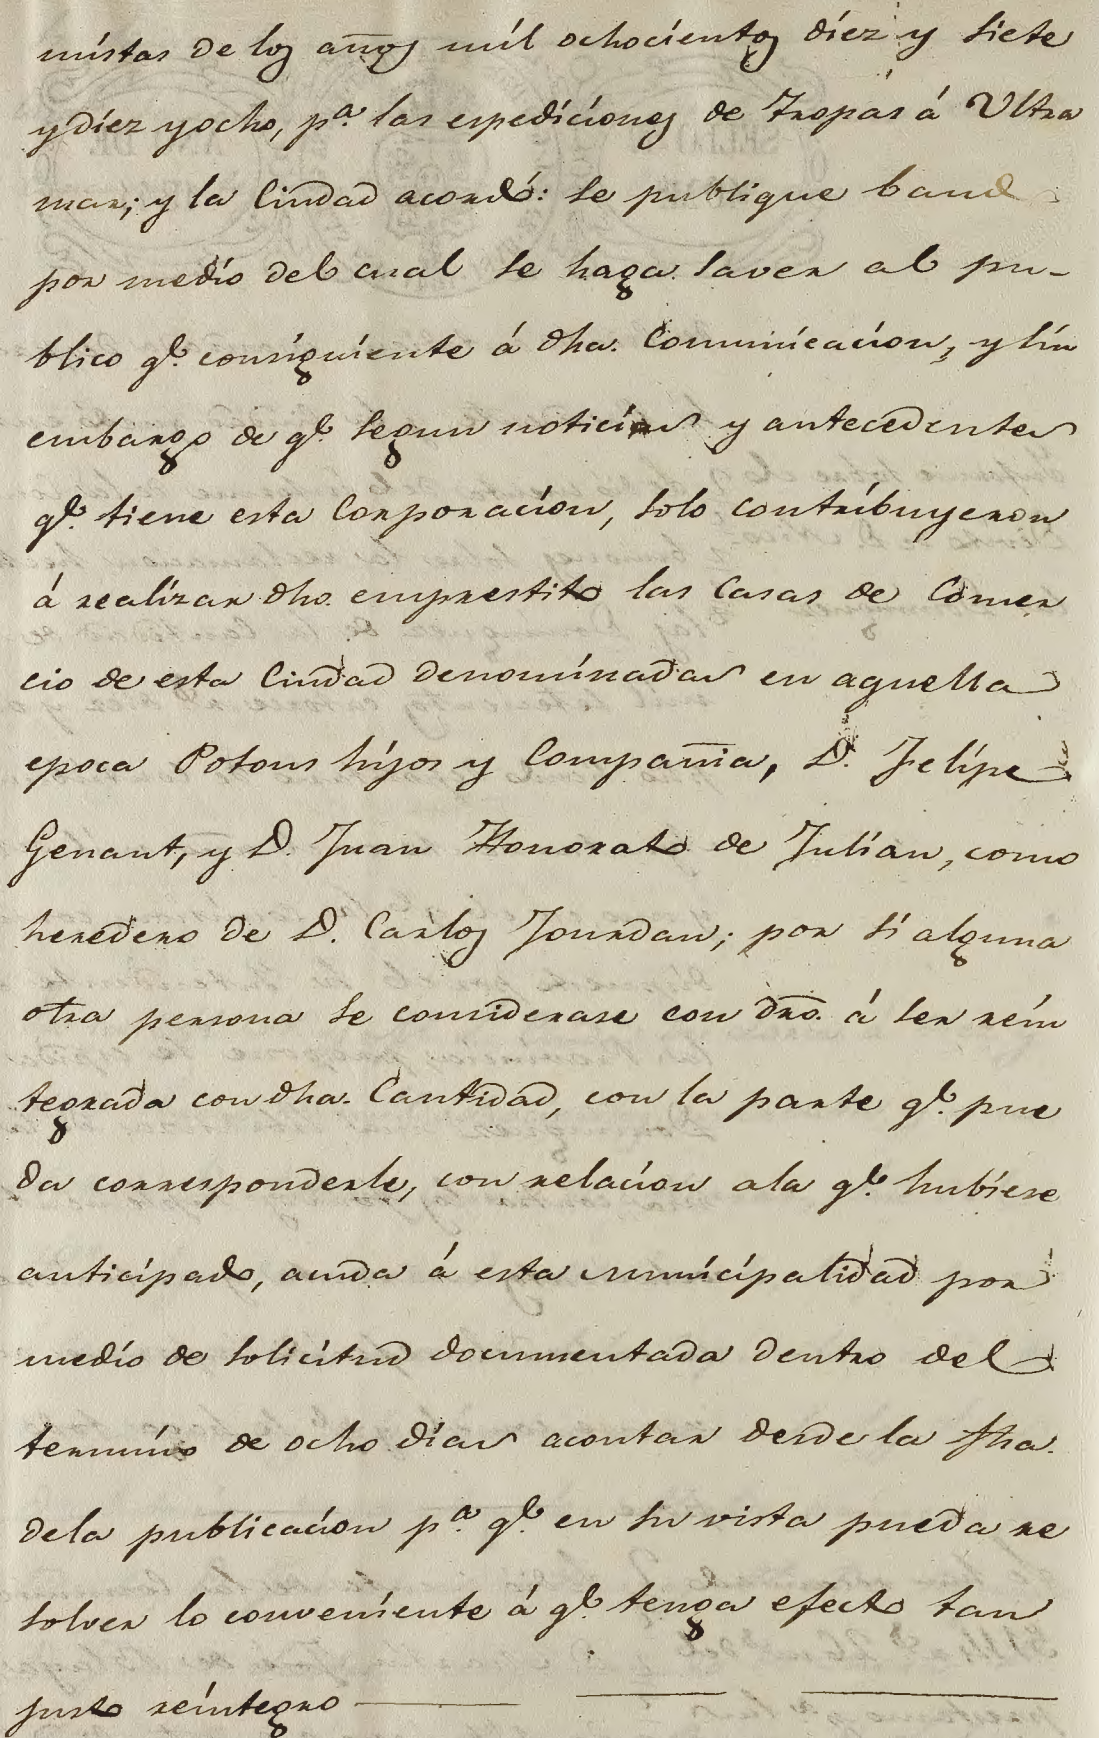 mistas de los años mil ochocientos diez y siete
y diez y ocho, pª. las espediciones de Tropas á Ultra
mar; y la Ciudad acordó: se publique band
por medio del cual se haga saver al pu-
blico qe. consiguiente á dha. Comunicacion, y sin
embargo de qe. segun noticias y antecedentes
qe. tiene esta Corporacion, solo contribuyeron
á realizar dho. emprestito las Casas de Comer
cio de esta Ciudad denominadas en aquella
epoca Potous hijos y Compañia, D. Felipe
Genant, y D. Juan Honorato de Julian, como
heredero de D. Carlos Jourdan; por si alguna
otra persona se considerase con dro. á ser rein
tegrada con dha. Cantidad, con la parte qe. pue
da corresponderle, con relacion a la qe. hubiese
anticipado, acuda á esta municipalidad por
medio de solicitud documentada dentro del
termino de ocho dias acontar desde la fha.
dela publicacion pª. qe. en su vista pueda re
solver lo conveniente á qe. tenga efecto tan
justo reintegro